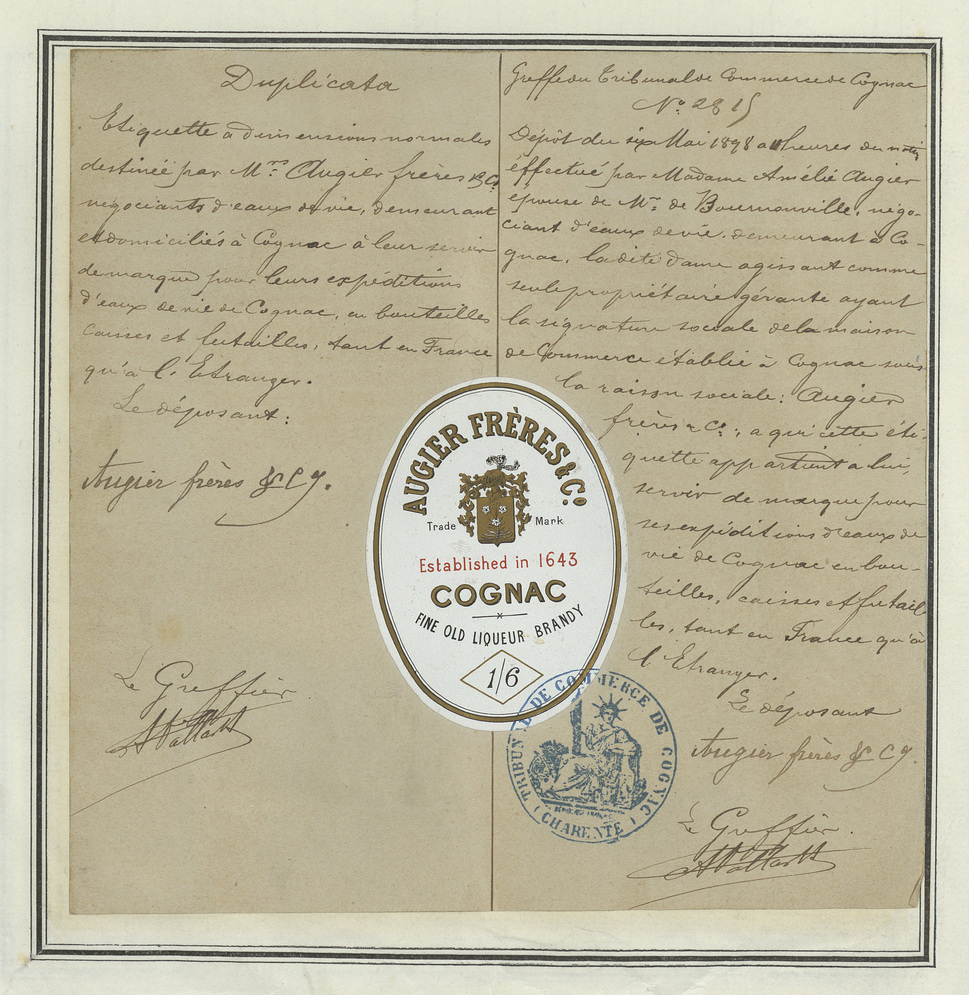 Duplicata
Etiquette a dimensions normales
destinée par M.rs Augier frères & Co
négociants d'eaux de vie, demeurant
et domiciliés à Cognac à leur servir
de marque pour leurs expéditions
d'eaux de vie de Cognac, en bouteilles
caisses et futailles, tant en France
qu'à l'Etranger.
Le déposant:
Augier frères & Cy.
Le Greffier
Greffe du Tribunal de Commerce de Cognac
No. 2815
Dépôt du six Mai 1898 a heures du matin
effectué par Madame Amélie Augier
épouse de Mr. de Bournonville, négo-
ciant d'eaux de vie, demeurant à Co-
gnac, la dite dame agissant comme
seule propriétaire gérante ayant
la signature sociale de la maison
de Commerce établie à Cognac sous
la raison sociale: Augier
frères & Co.; a qui cette éti-
quette appartient a lui
servir de marque pour
ses expéditions d'eaux de
vie de Cognac en bou-
teilles, caisses et futail
les, tant en France qu'à
l'Etranger.
Le déposant
Augier frères & Cy.
Le Greffier.
AUGIER FRÈRES & Co.
Trade Mark
Established in 1643
COGNAC
FINE OLD LIQUEUR BRANDY
1/6
TRIBUNAL DE COMMERCE DE COGNAC
(CHARENTE)